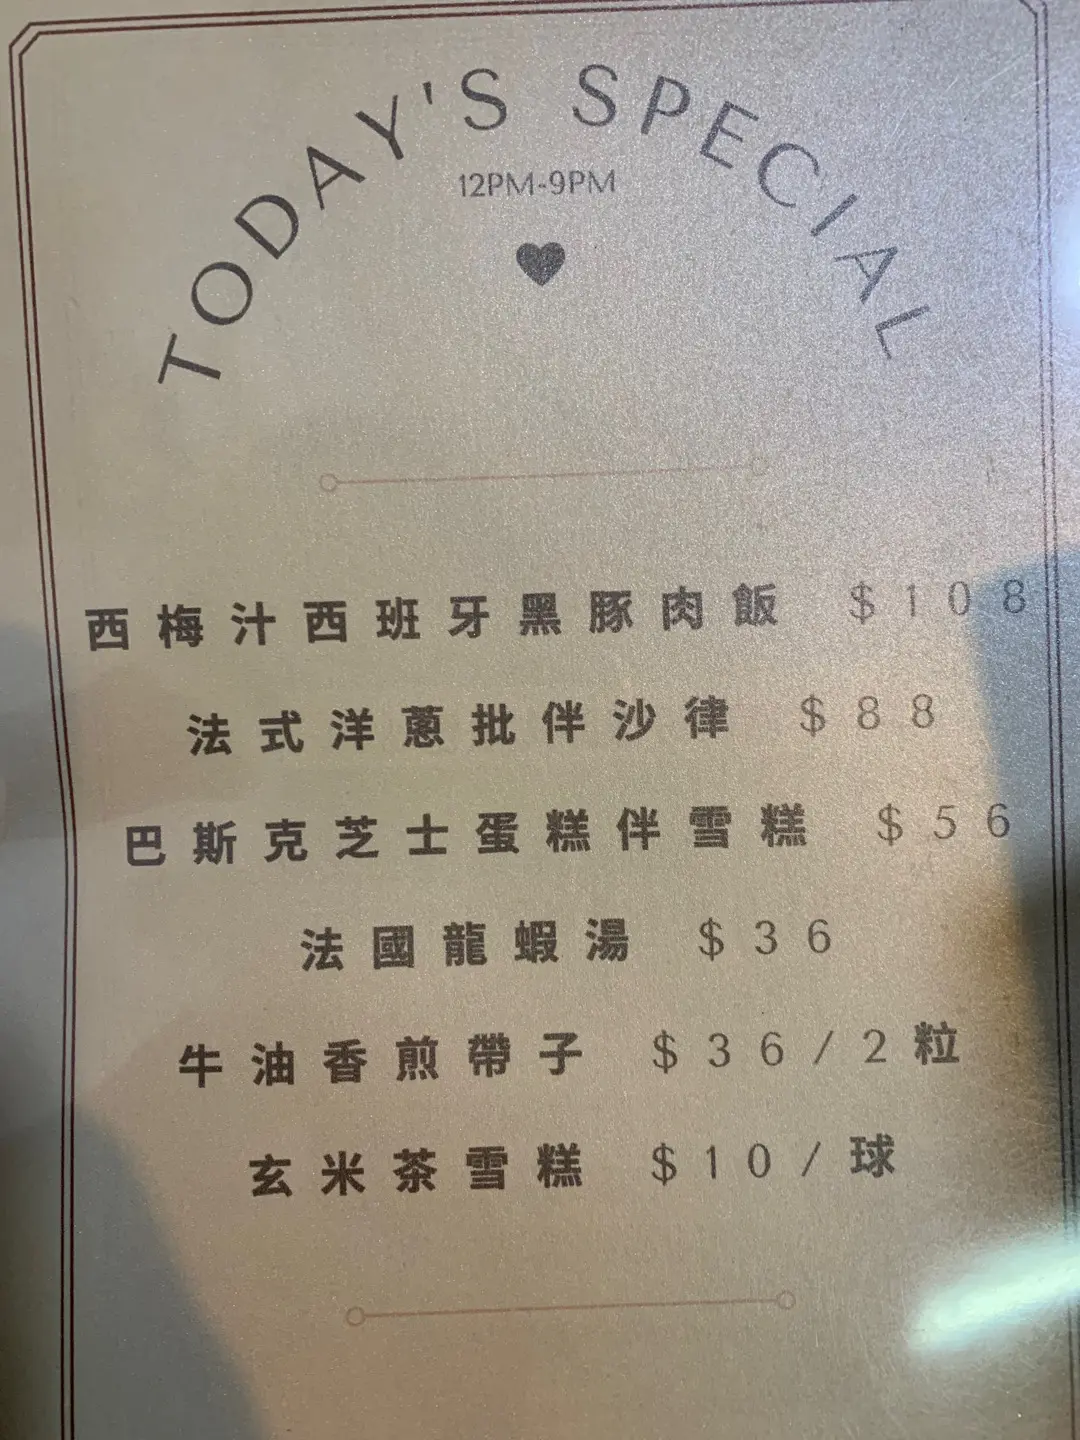 TODAY'S SPECIAL
12PM-9PM
西梅汁西班牙黑豚肉飯 $108
法式洋蔥批伴沙律 $88
巴斯克芝士蛋糕伴雪糕 $56
法國龍蝦湯 $36
牛油香煎帶子 $36/2粒
玄米茶雪糕 $10/球